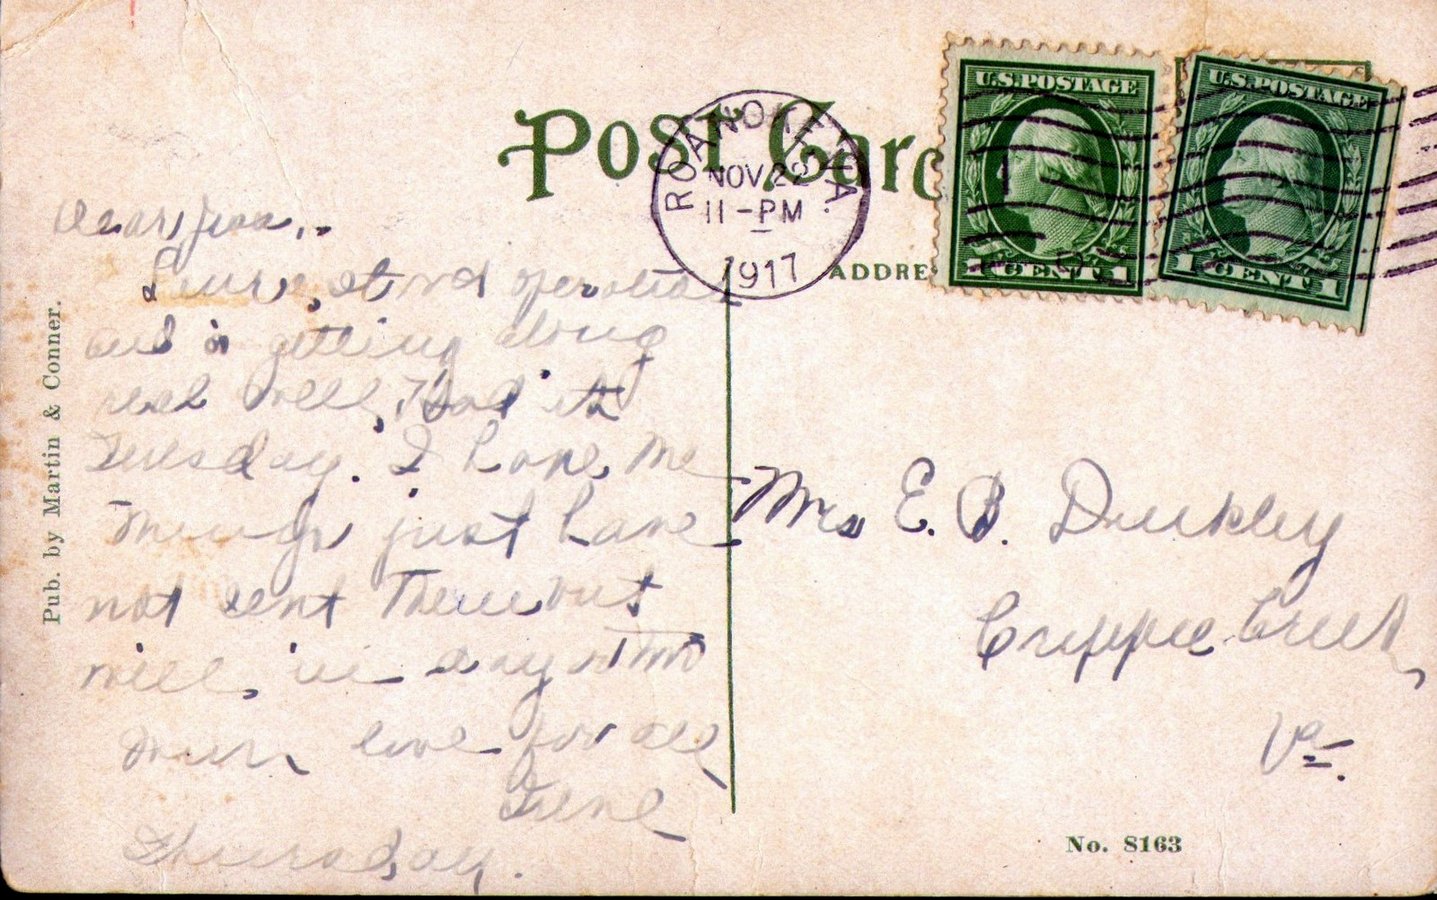 POST CARD
ROANOKE, VA.
NOV 22
11-PM
1917
U.S. POSTAGE
1 CENT 1
U.S. POSTAGE
1 CENT 1
ADDRE
Pub. by Martin & Conner.
Dear
stood operation
and is getting along
real well, Had it
Tuesday. I hope
just have
not sent
will, in day or two
love for all
Irene
Thursday.
Mrs E. B.
Cripple Creek,
Va.
No. 8163